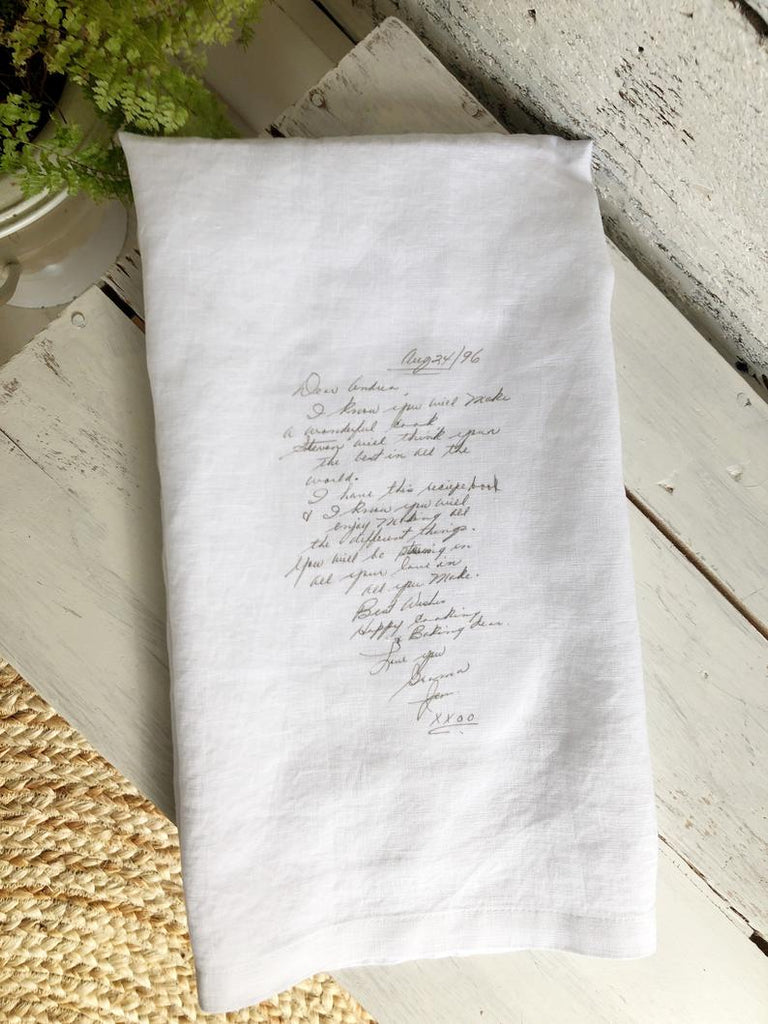 Aug 24/96
Dear Andrea,
I know you will make
a wonderful cook
Steven will think your
the best in all the
world.
I have this recipe book
& I know you will
enjoy Making all
the different things.
You will be putting in
all your love in
all you Make.
Best Wishes
Happy Cooking
& Baking dear.
Love you
Gramma
Jem
XXOO